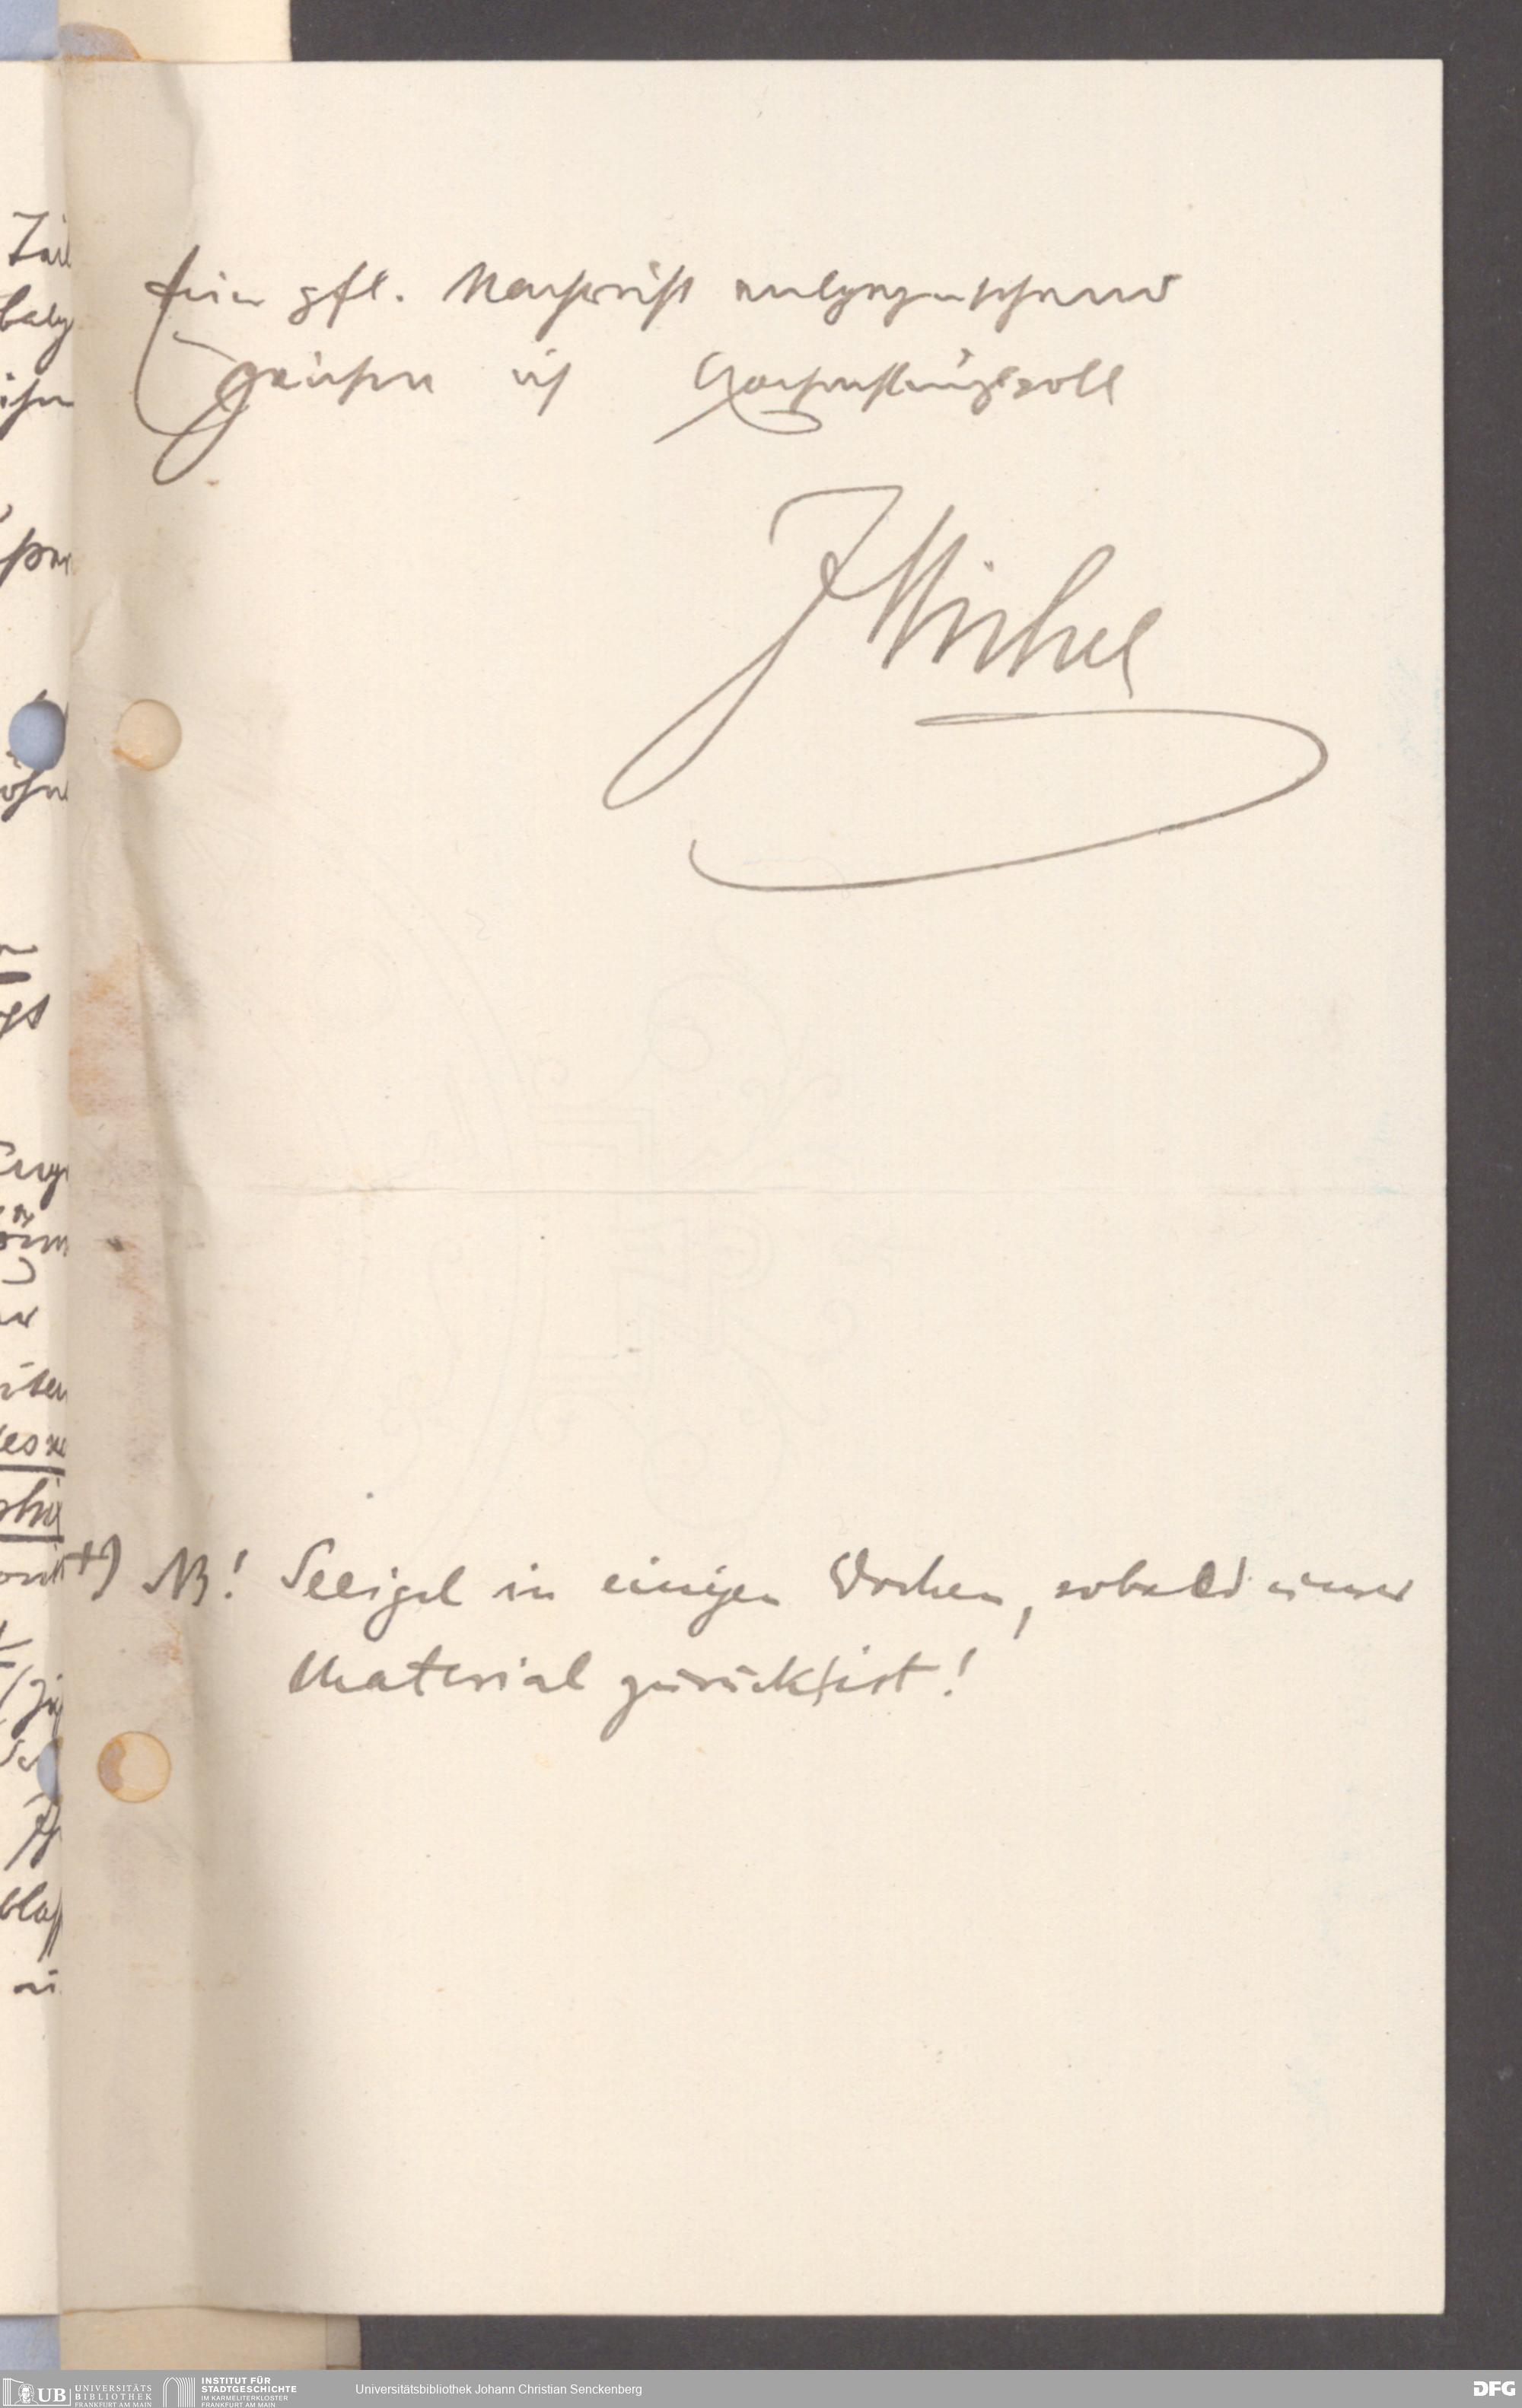 Einer gfl. Nachricht entgegensehend
zeichne ich Hochachtungsvoll
F Michel
+) NB! Seeigel in einigen Wochen, sobald unser
Material zurück ist!
UB UNIVERSITÄTS BIBLIOTHEK FRANKFURT AM MAIN
INSTITUT FÜR STADTGESCHICHTE IM KARMELITERKLOSTER FRANKFURT AM MAIN
Universitätsbibliothek Johann Christian Senckenberg
DFG